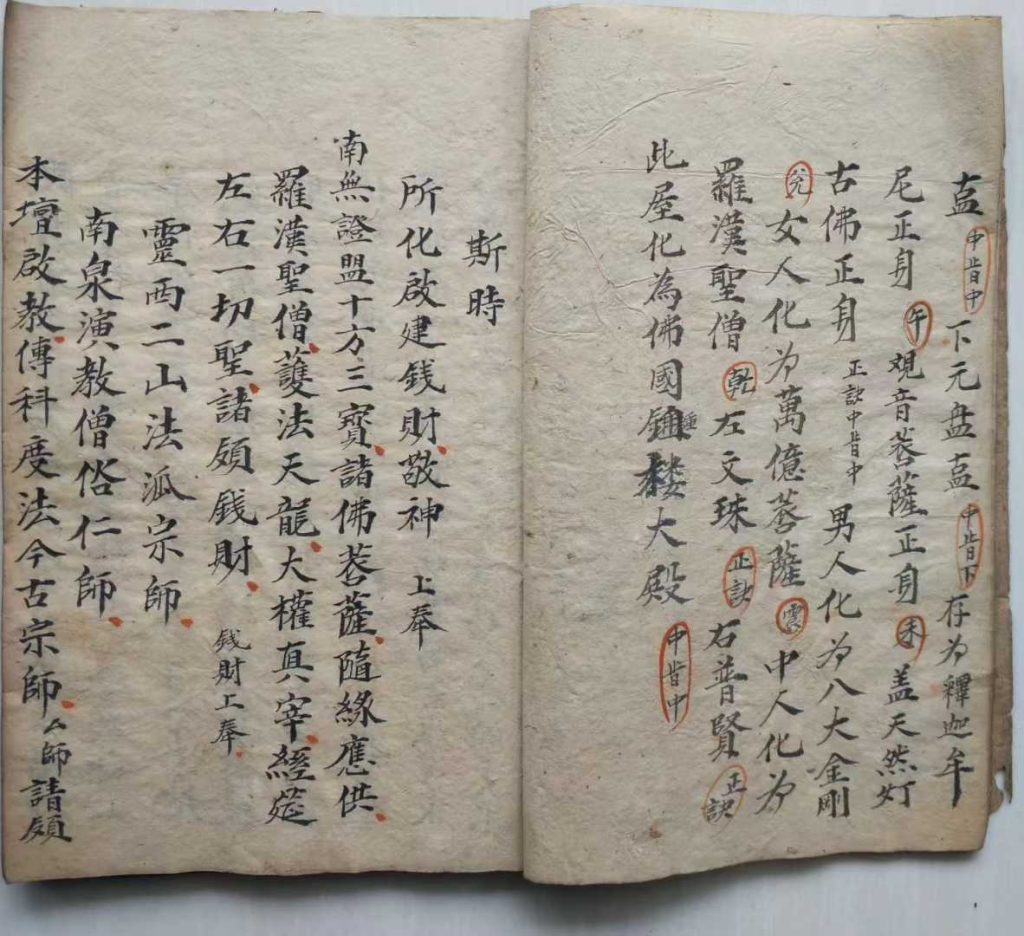 盍 中指中 下元盘盍 中指下 存为釋迦牟
尼正身 午 观音菩薩正身 未 盖天然灯
古佛正身 正訣中指中 男人化为八大金剛
兌 女人化为萬億菩薩 震 中人化为
羅漢聖僧 乾 左文珠 正訣 右普賢 正訣
此屋化為佛國鍾楼大殿 中指中
斯時
所化啟建钱財敬神 上奉
南無證盟十方三寶諸佛菩薩隨緣應供
羅漢聖僧護法天龍大權真宰經筵
左右一切聖諸領钱財 钱財上奉
靈西二山法派宗師
南泉演教僧俗仁師
本壇啟教傳科度法今古宗師 師請領